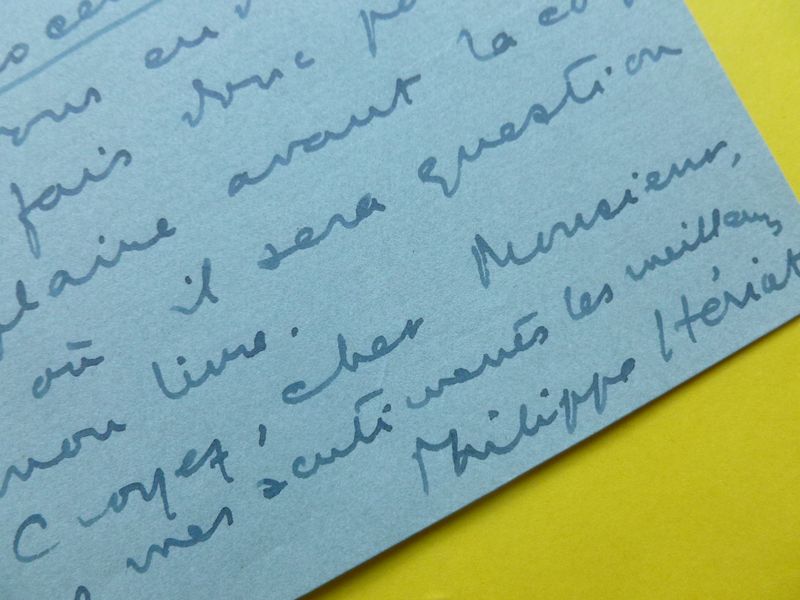 vous en
fais donc
avant la
où il sera question
mon livre.
Croyez, cher Monsieur,
mes sentiments les meilleurs,
Philippe Hériat